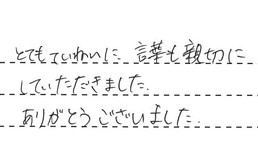 とてもていねいに 言葉も親切に
していただきました.
ありがとうございました.